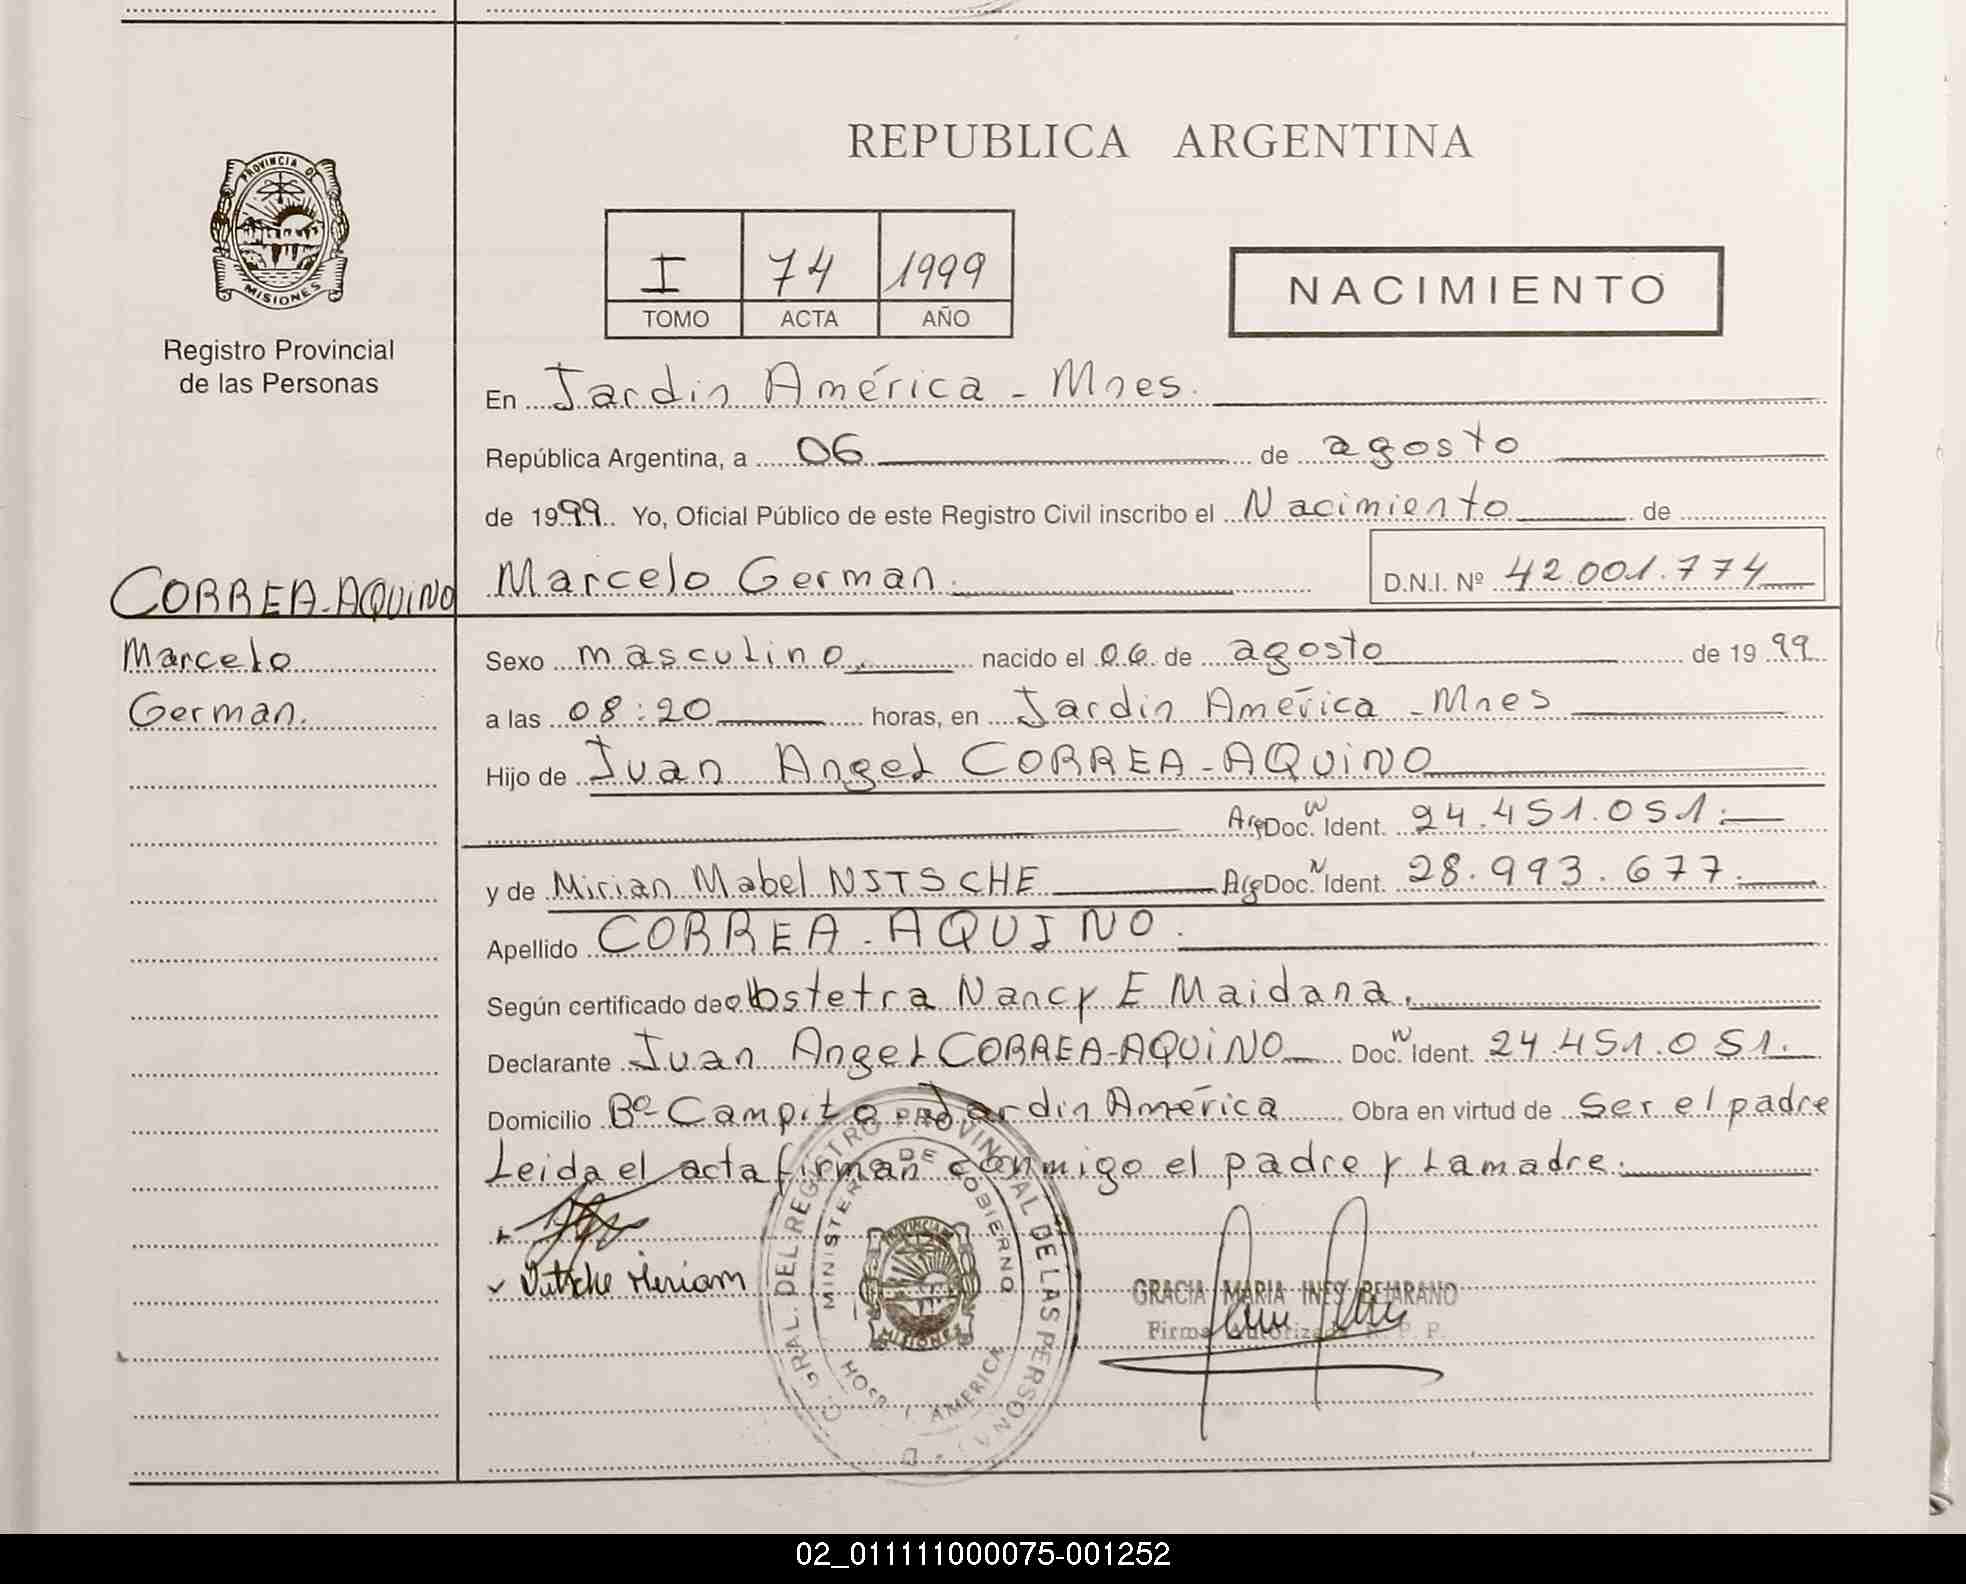 REPUBLICA ARGENTINA
PROVINCIA DE
MISIONES
Registro Provincial
de las Personas
I 74 1999
TOMO ACTA AÑO
NACIMIENTO
En Jardin América - Mnes.
República Argentina, a 06 de agosto
de 1999 Yo, Oficial Público de este Registro Civil inscribo el Nacimiento de
Marcelo German. D.N.I. Nº 42.001.774
CORREA-AQUINO
Marcelo
German.
Sexo masculino, nacido el 06 de agosto de 1999
a las 08:20 horas, en Jardin América - Mnes
Hijo de Juan Angel CORREA-AQUINO
Arg Doc. N Ident. 24.451.051.
y de Mirian Mabel NITSCHE Arg Doc. N Ident. 28.993.677.
Apellido CORREA-AQUINO.
Según certificado de obstetra Nancy E Maidana.
Declarante Juan Angel CORREA-AQUINO Doc. N Ident. 24.451.051.
Domicilio Bº Campito Jardin América Obra en virtud de Ser el padre
Leida el acta firman conmigo el padre y la madre.
Nitsche Miriam
GRAL. DEL REGISTRO PROVINCIAL DE LAS PERSONAS
MINISTERIO DE GOBIERNO
PROVINCIA DE
MISIONES
HOSP AMERICA
GRACIA MARIA INES BEJARANO
Firma Autorizada R. P. P.
02_011111000075-001252